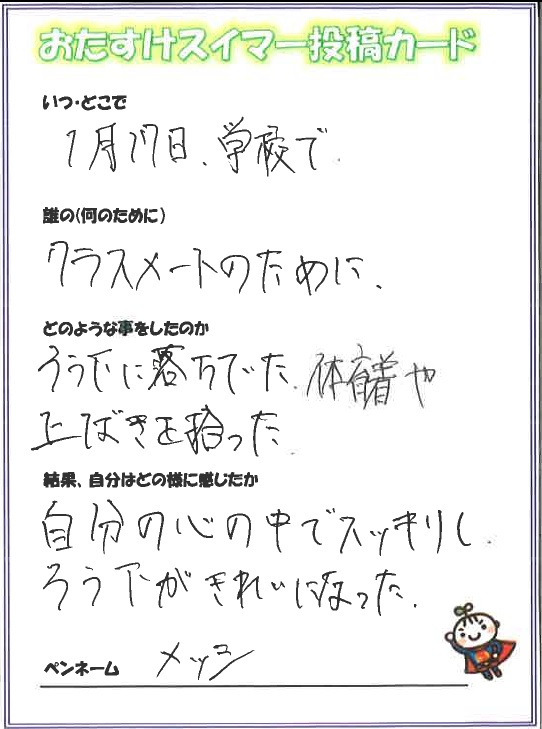 おたすけスイマー投稿カード
いつ・どこで
1月17日、学校で.
誰の(何のために)
クラスメートのために、
どのような事をしたのか
ろう下に落ちてた、体育着や
上ばきを拾った
結果、自分はどの様に感じたか
自分の心の中でスッキリし、
ろう下がきれいになった.
ペンネーム